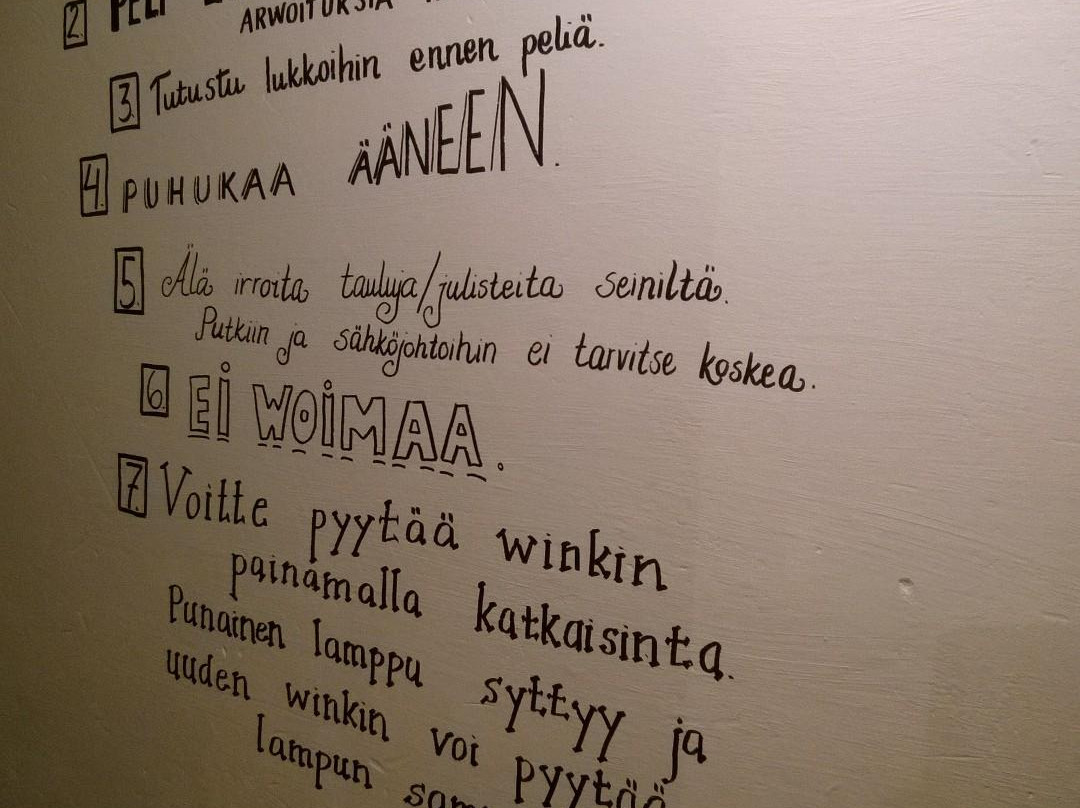 2. PELI
ARWOITUKSIA
3. Tutustu lukkoihin ennen peliä.
4. PUHUKAA ÄÄNEEN.
5. Älä irroita tauluja/julisteita seiniltä.
Putkiin ja sähköjohtoihin ei tarvitse koskea.
6. EI WOIMAA.
7. Voitte pyytää winkin
painamalla katkaisinta.
Punainen lamppu syttyy ja
uuden winkin voi pyytää
lampun